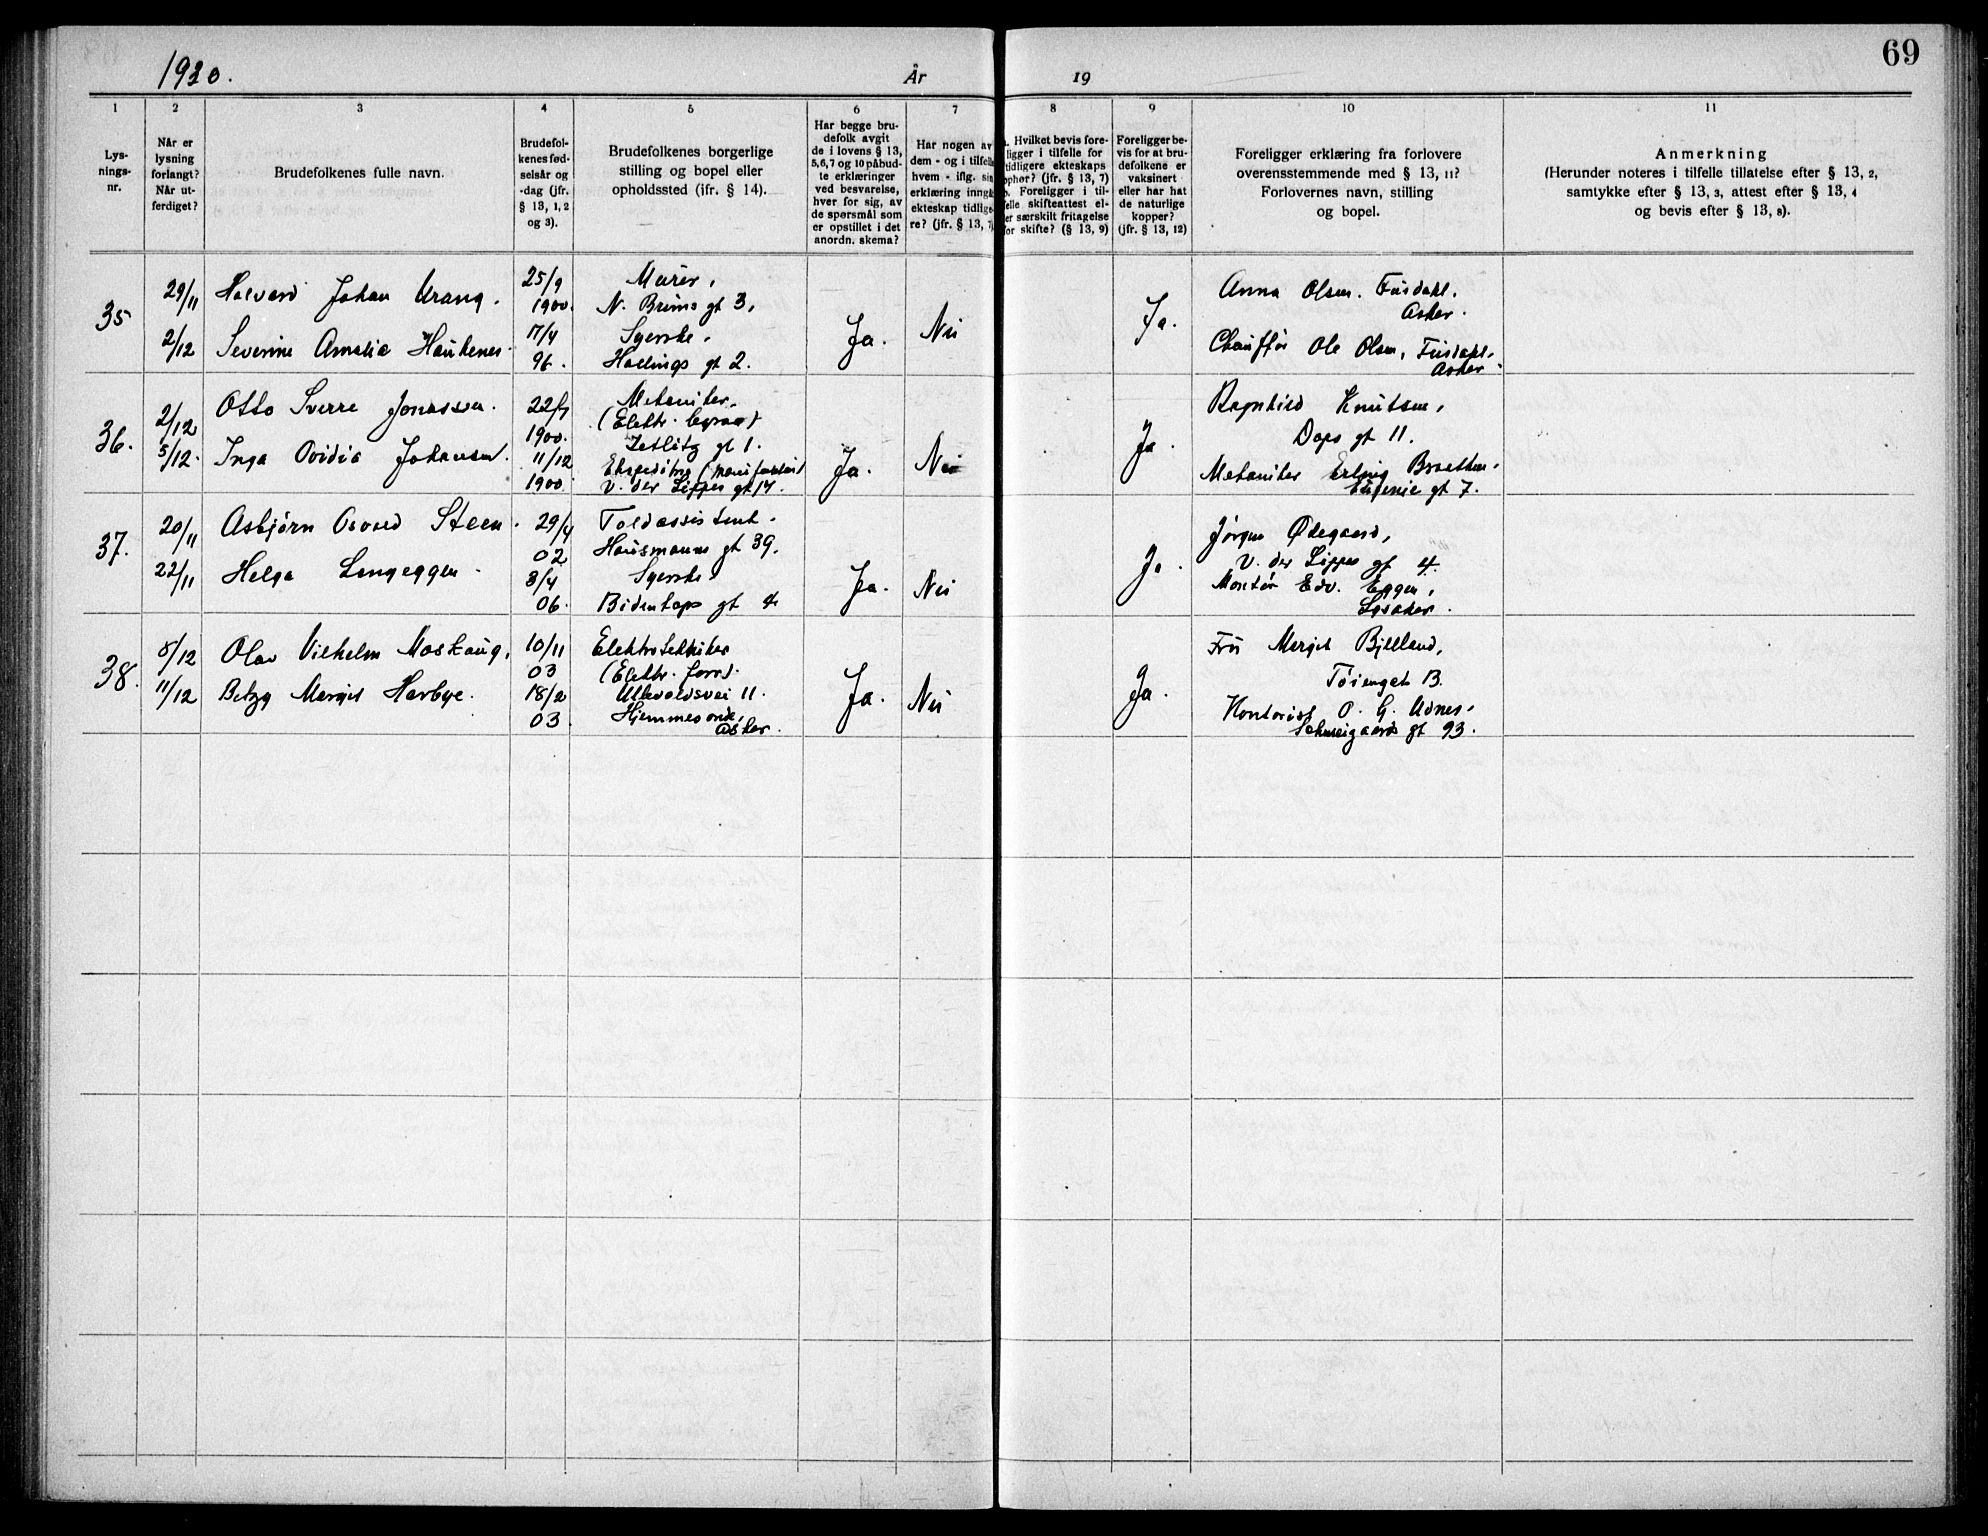 1930.
År
19
69
1
2
3
4
5
6
7
8
9
10
11
Lys-
nings-
nr.
Når er
lysning
forlangt?
Når ut-
ferdiget?
Brudefolkenes fulle navn.
Brudefol-
kenes fød-
selsår og
-dag (jfr.
§ 13, 1, 2
og 3).
Brudefolkenes borgerlige
stilling og bopel eller
opholdssted (jfr. § 14).
Har begge bru-
defolk avgit
de i lovens § 13,
5,6,7 og 10 påbud-
te erklæringer
ved besvarelse,
hver for sig, av
de spørsmål som
er opstillet i det
anordn. skema?
Har nogen av
dem - og i tilfelle
hvem - iflg. sin
erklæring inngå
ekteskap tidlige-
re? (jfr. § 13, 7)
Hvilket bevis fore-
ligger i tilfelle for
tidligere ekteskaps
ophør? (jfr. § 13, 7)
b. Foreligger i til-
felle skifteattest el-
er særskilt fritagelse
for skifte? (§ 13, 9)
Foreligger be-
vis for at bru-
defolkene er
vaksinert
eller har hat
de naturlige
kopper?
(jfr. § 13, 12)
Foreligger erklæring fra forlovere
overensstemmende med § 13, 11?
Forlovernes navn, stilling
og bopel.
Anmerkning
(Herunder noteres i tilfelle tillatelse efter § 13, 2,
samtykke efter § 13, 3, attest efter § 13, 4
og bevis efter § 13, 8).
35
29/11
2/12
Halvard Johan Urang.
Severine Amalie Haukenes.
25/9
1900.
17/4
96.
Murer,
N. Bruns gt 3,
Syerske,
Hallings gt 2.
Ja.
Nei
Ja.
Anna Olsen. Fusdahl.
Asker.
Chauffør Ole Olsen, Fusdahl,
Asker.
36.
2/12
5/12.
Otto Sverre Jonassen.
Inga Ovidia Johansen.
22/7
1900.
11/12
1900.
Mekaniker.
Zetlitz gt 1.
V. der Lippes gt 17.
Ja.
Nei
Ja.
Ragnhild Knutsen,
Dops gt 11.
Mekaniker Erling Braathen,
Eugenie gt 7.
37.
20/11
22/11
Asbjörn Osvad Steen.
Helga Langeggen.
29/4
02
8/4
06.
Toldassistent.
Hausmanns gt 39.
Syerske,
Bidenkaps gt 4
Ja.
Nei
Ja.
Jørgen Ødegaard,
V. der Lippes gt 4.
Montør Edv. Eggen,
Lysaker.
38.
8/12
11/12
Olav Vilhelm Moshaug,
Betzy Margit Harbye.
10/11
03
18/2
03.
Elektrotekniker
Ullevoldsvei 11.
Hjemmeværende,
Asker.
Ja.
Nei
Ja.
Fru Margit Bjelland,
Tøiengt 13.
Kontorist O. G. Udnes,
Schweigaards gt 93.